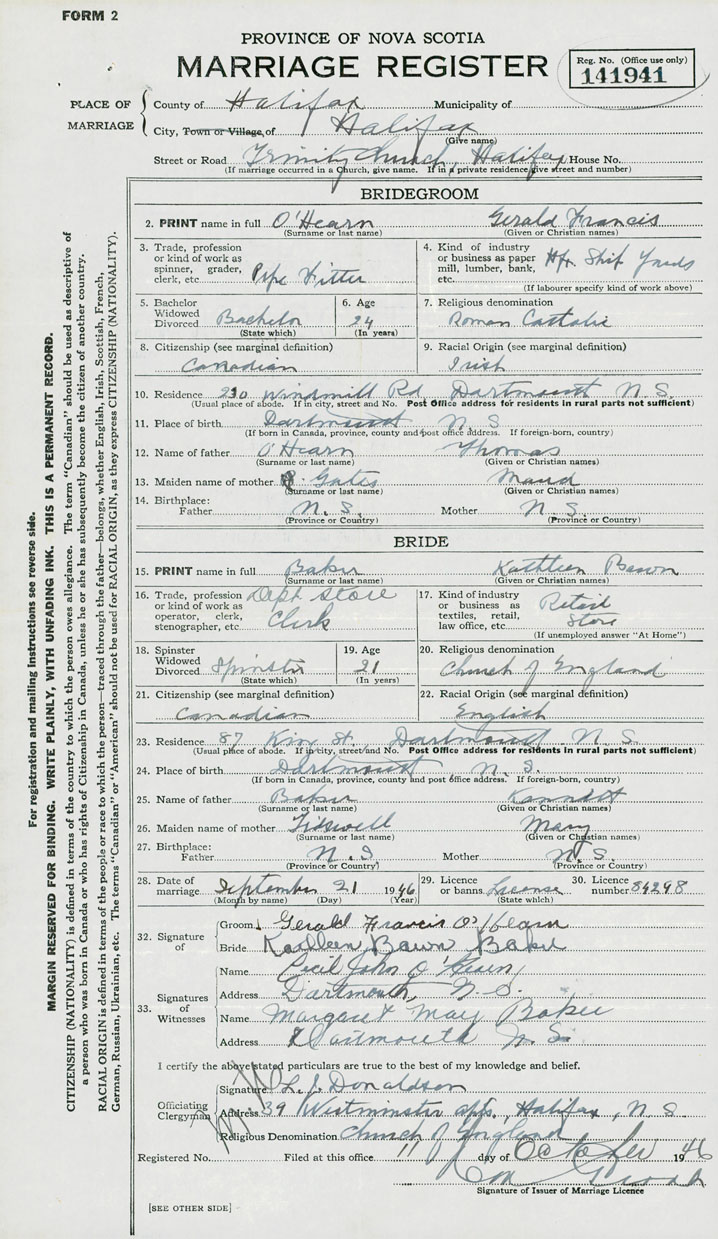 FORM 2
PROVINCE OF NOVA SCOTIA
MARRIAGE REGISTER
Reg. No. (Office use only)
141941
PLACE OF MARRIAGE
County of Halifax Municipality of
City, Town or Village, of Halifax
(Give name)
Street or Road Trinity Church, Halifax House No.
(If marriage occurred in a Church, give name. If in a private residence, give street and number)
BRIDEGROOM
2. PRINT name in full O'Hearn Gerald Francis
(Surname or last name) (Given or Christian names)
3. Trade, profession or kind of work as spinner, grader, clerk, etc. Pipe Fitter
4. Kind of industry or business as paper mill, lumber, bank, etc. Hfx Ship Yards
(If labourer specify kind of work above)
5. Bachelor Widowed Divorced Bachelor
(State which)
6. Age 24
(In years)
7. Religious denomination
Roman Catholic
8. Citizenship (see marginal definition)
Canadian
9. Racial Origin (see marginal definition)
Irish
10. Residence 230 Windmill Rd Dartmouth N.S.
(Usual place of abode. If in city, street and No. Post Office address for residents in rural parts not sufficient)
11. Place of birth Dartmouth N S
(If born in Canada, province, county and post office address. If foreign-born, country)
12. Name of father O'Hearn Thomas
(Surname or last name) (Given or Christian names)
13. Maiden name of mother Gates Maud
(Surname or last name) (Given or Christian names)
14. Birthplace: Father N.S. Mother N.S.
(Province or Country) (Province or Country)
BRIDE
15. PRINT name in full Baker Kathleen Bawn
(Surname or last name) (Given or Christian names)
16. Trade, profession or kind of work as operator, clerk, stenographer, etc. Dept Store Clerk
17. Kind of industry or business as textiles, retail, law office, etc. Retail Store
(If unemployed answer "At Home")
18. Spinster Widowed Divorced Spinster
(State which)
19. Age 21
(In years)
20. Religious denomination
Church of England
21. Citizenship (see marginal definition)
Canadian
22. Racial Origin (see marginal definition)
English
23. Residence 87 King St. Dartmouth N.S.
(Usual place of abode. If in city, street and No. Post Office address for residents in rural parts not sufficient)
24. Place of birth Dartmouth N.S.
(If born in Canada, province, county and post office address. If foreign-born, country)
25. Name of father Baker
(Surname or last name) (Given or Christian names)
26. Maiden name of mother Mary
(Surname or last name) (Given or Christian names)
27. Birthplace: Father N.S. Mother N.S.
(Province or Country) (Province or Country)
28. Date of marriage September 21 1946
(Month by name) (Day) (Year)
29. Licence or banns License
(State which)
30. Licence number 84298
32. Signature of
Groom Gerald Francis O'Hearn
Bride Kathleen Bawn Baker
33. Signatures of Witnesses
Name Cecil John O'Hearn
Address Dartmouth, N.S.
Name Margaret May Baker
Address Dartmouth N.S.
I certify the above stated particulars are true to the best of my knowledge and belief.
Officiating Clergyman
Signature L. J. Donaldson
Address 39 Westminster apts., Halifax, N.S.
Religious Denomination Church of England
Registered No. Filed at this office 11 day of October 1946
Signature of Issuer of Marriage Licence
[SEE OTHER SIDE]
For registration and mailing instructions see reverse side.
MARGIN RESERVED FOR BINDING. WRITE PLAINLY, WITH UNFADING INK. THIS IS A PERMANENT RECORD.
CITIZENSHIP (NATIONALITY) is defined in terms of the country to which the person owes allegiance. The term "Canadian" should be used as descriptive of
a person who was born in Canada or who has rights of Citizenship in Canada, unless he or she has subsequently become the citizen of another country.
RACIAL ORIGIN is defined in terms of the people or race to which the person—traced through the father—belongs, whether English, Irish, Scottish, French,
German, Russian, Ukrainian, etc. The terms "Canadian" or "American" should not be used for RACIAL ORIGIN, as they express CITIZENSHIP (NATIONALITY).